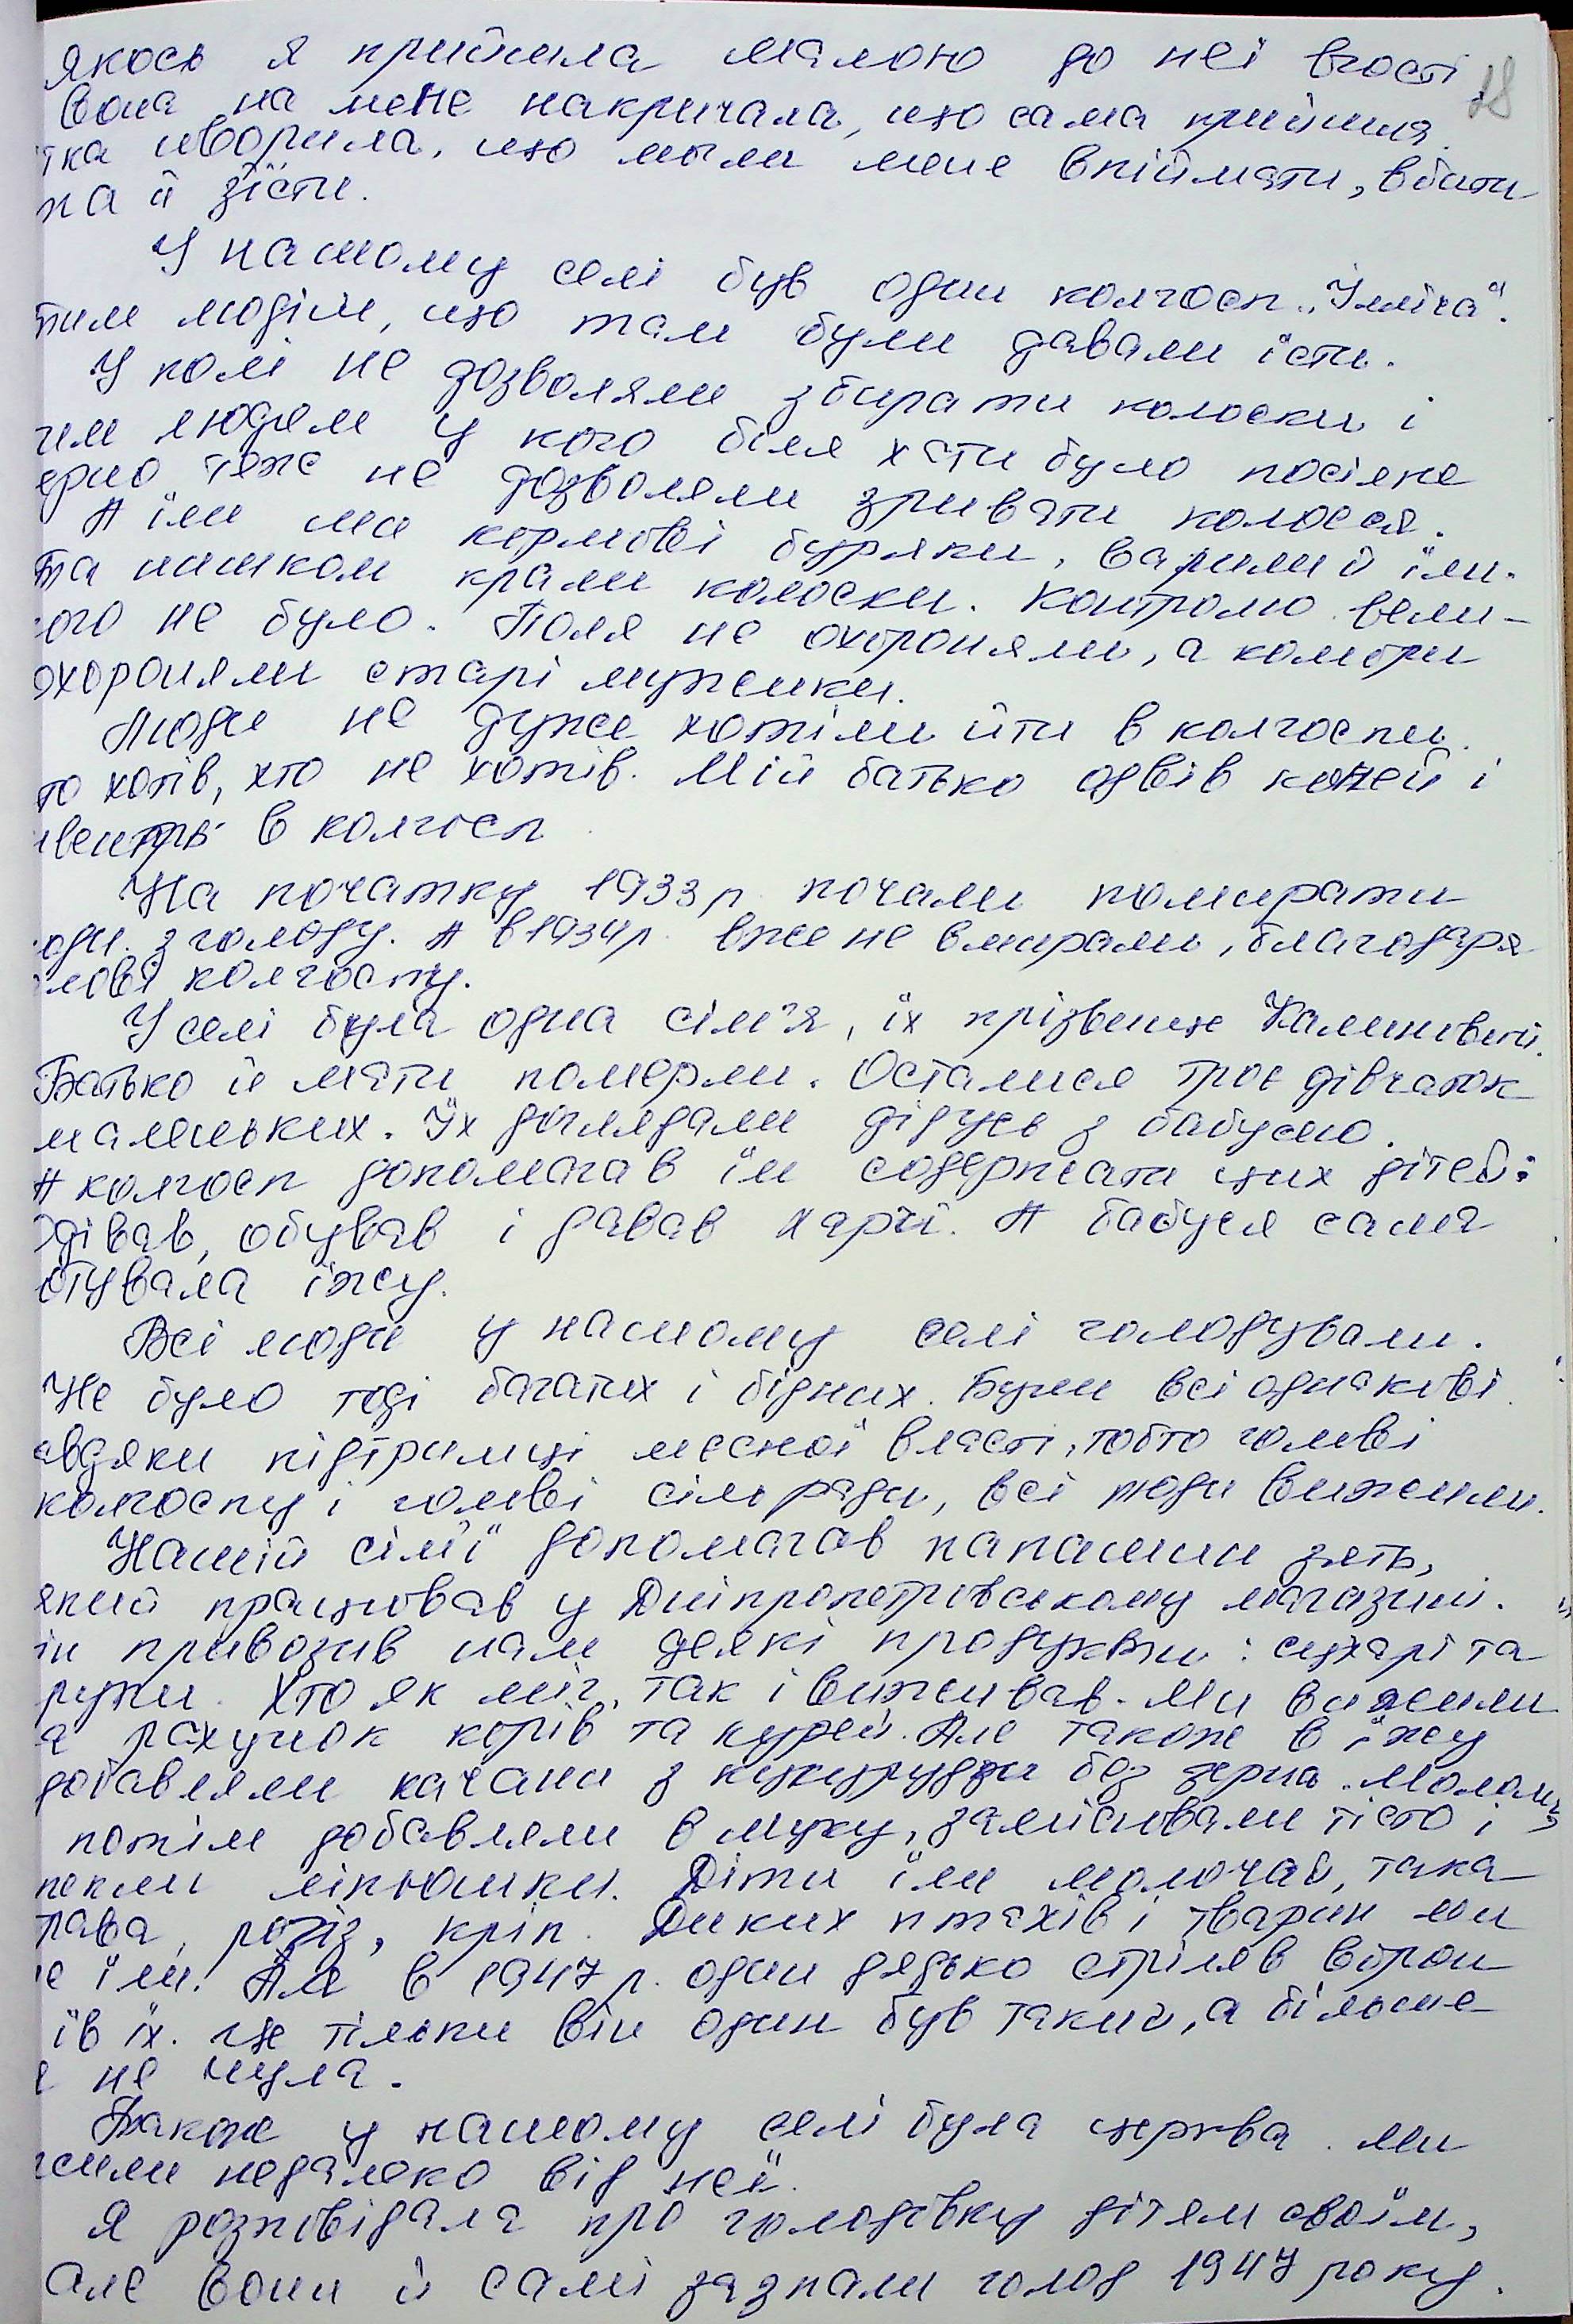 якось я прийшла малою до неї вгості
28
Вона на мене накричала, що сама прийшла.
тка иворила, що могли мене впіймати, вбити
та й зїсти.
У нашому селі був один колгосп „Ілліча".
тим людім, що там були давали їсти.
У полі не дозволяли збирати колоски і
тим людям у кого біля хати було посіяне
ерно теж не дозволяли зривати колосся.
А їли ми кормові буряки, варили й їли.
Та нишком крали колоски. Контролю вели-
ого не було. Поля не охороняли, а комори
охороняли старі мужики.
Люди не дуже хотіли йти в колгоспи.
то хотів, хто не хотів. Мій батько одвів коней і
івентрь в колгосп
На початку 1933 р. почали помирати
юди з голоду. А в 1934 р. вже не вмирали, благодаря
лові колгоспу.
У селі була одна сім'я, їх прізвище Калиновські.
Батько й мати померли. Осталися троє дівчаток
маленьких. Їх доглядали дідусь з бабусею.
А колгосп допомагав їм содержати цих дітей:
одівав, обував і давав харчі. А бабуся сама
отувала їжу.
Всі люди у нашому селі голодували.
Не було тоді багатих і бідних. Були всі однакові.
авдяки підтримці месної власті, тобто голові
колгоспу і голові сільради, всі люди вижили.
Нашій сім'ї допомагав папашин зять,
який працював у Дніпропетровському магазині.
ін привозив нам деякі продукти: сухарі та
рупи. Хто як міг, так і виживав. Ми вижили
а рахунок корів та курей. Але також в їжу
добавляли качани з кукурудзи без зерна. Мололи
потім добавляли в муку, замішували тісто і
пекли ліпюшки. Діти їли молочай, така
рава, рогіз, кріп. Диких птахів і тварин ми
е їли. Але в 1947 р. один дядько стріляв ворон
їв їх. Це тільки він один був такий, а більше
я не чула.
Також у нашому селі була церква. Ми
жили недалеко від неї.
Я розповідала про голодівку дітям своїм,
але вони й самі зазнали голод 1947 року.